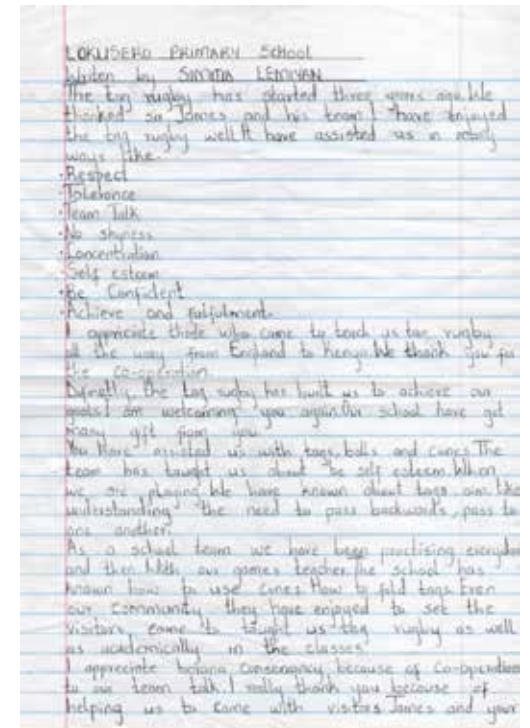 LOKUSERO PRIMARY School
Written by SIMITIA LEMIYAN
The tag rugby has started three years ago. We
thanked sir James and his team I have enjoyed
the tag rugby well. It have assisted us in many
ways like.
· Respect
· Tolerance
· Team Talk
· No shyness
· Concentration
· Self esteem
· Be Confident
· Achieve and fulfulment.
I appreciate those who came to teach us tag rugby
all the way from England to Kenya. We thank you for
the co-operation.
the tag rugby has built us to achieve our
goals. I am welcoming you again. Our school have got
many gift from you
You have assisted us with tags, balls and cones The
team has taught us about be self esteem. When
we are playing. We have known about tags aim like
understanding the need to pass backwards, pass to
one another.
As a school team we have been practising everyday
and then With our games teacher. The school has
known how to use cones. How to fold tags. Even
our Community they have enjoyed to see the
visitors came to taught us tag rugby as well
as academically in the classes.
I appreciate because of Co-operation
to our team talk. I really thank you because of
helping us to come with visitors James and your